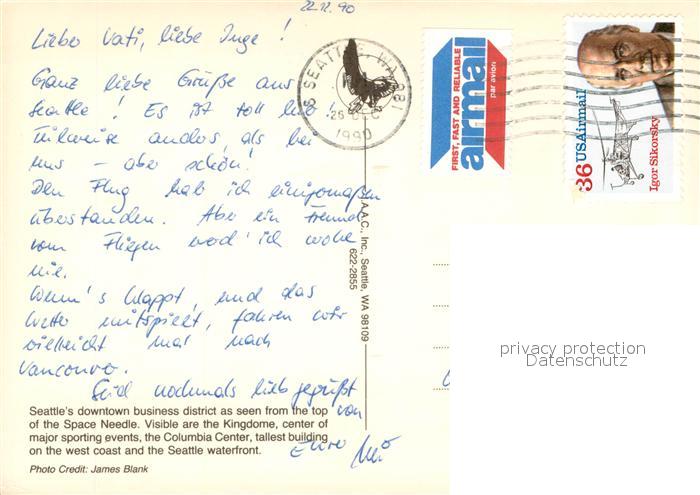 22.12.90
Lieber Vati, liebe Inge!
Ganz liebe Grüße aus
Seattle! Es ist toll hier!
Teilweise anders, als bei
uns – aber schön!
Den Flug hab ich einigermaßen
überstanden. Aber ein Freund
vom Fliegen werd' ich wohl
nie.
Wenn's klappt, und das
Wetter mitspielt, fahren wir
vielleicht mal nach
Vancouver.
Seid nochmals lieb gegrüßt
von
Eure
Seattle's downtown business district as seen from the top
of the Space Needle. Visible are the Kingdome, center of
major sporting events, the Columbia Center, tallest building
on the west coast and the Seattle waterfront.
Photo Credit: James Blank
J.A.A.C., Inc., Seattle, WA 98109
622-2855
SEATTLE, WA 981
26
1990
FIRST, FAST AND RELIABLE
airmail
par avion
36 USAirmail
Igor Sikorsky
privacy protection
Datenschutz